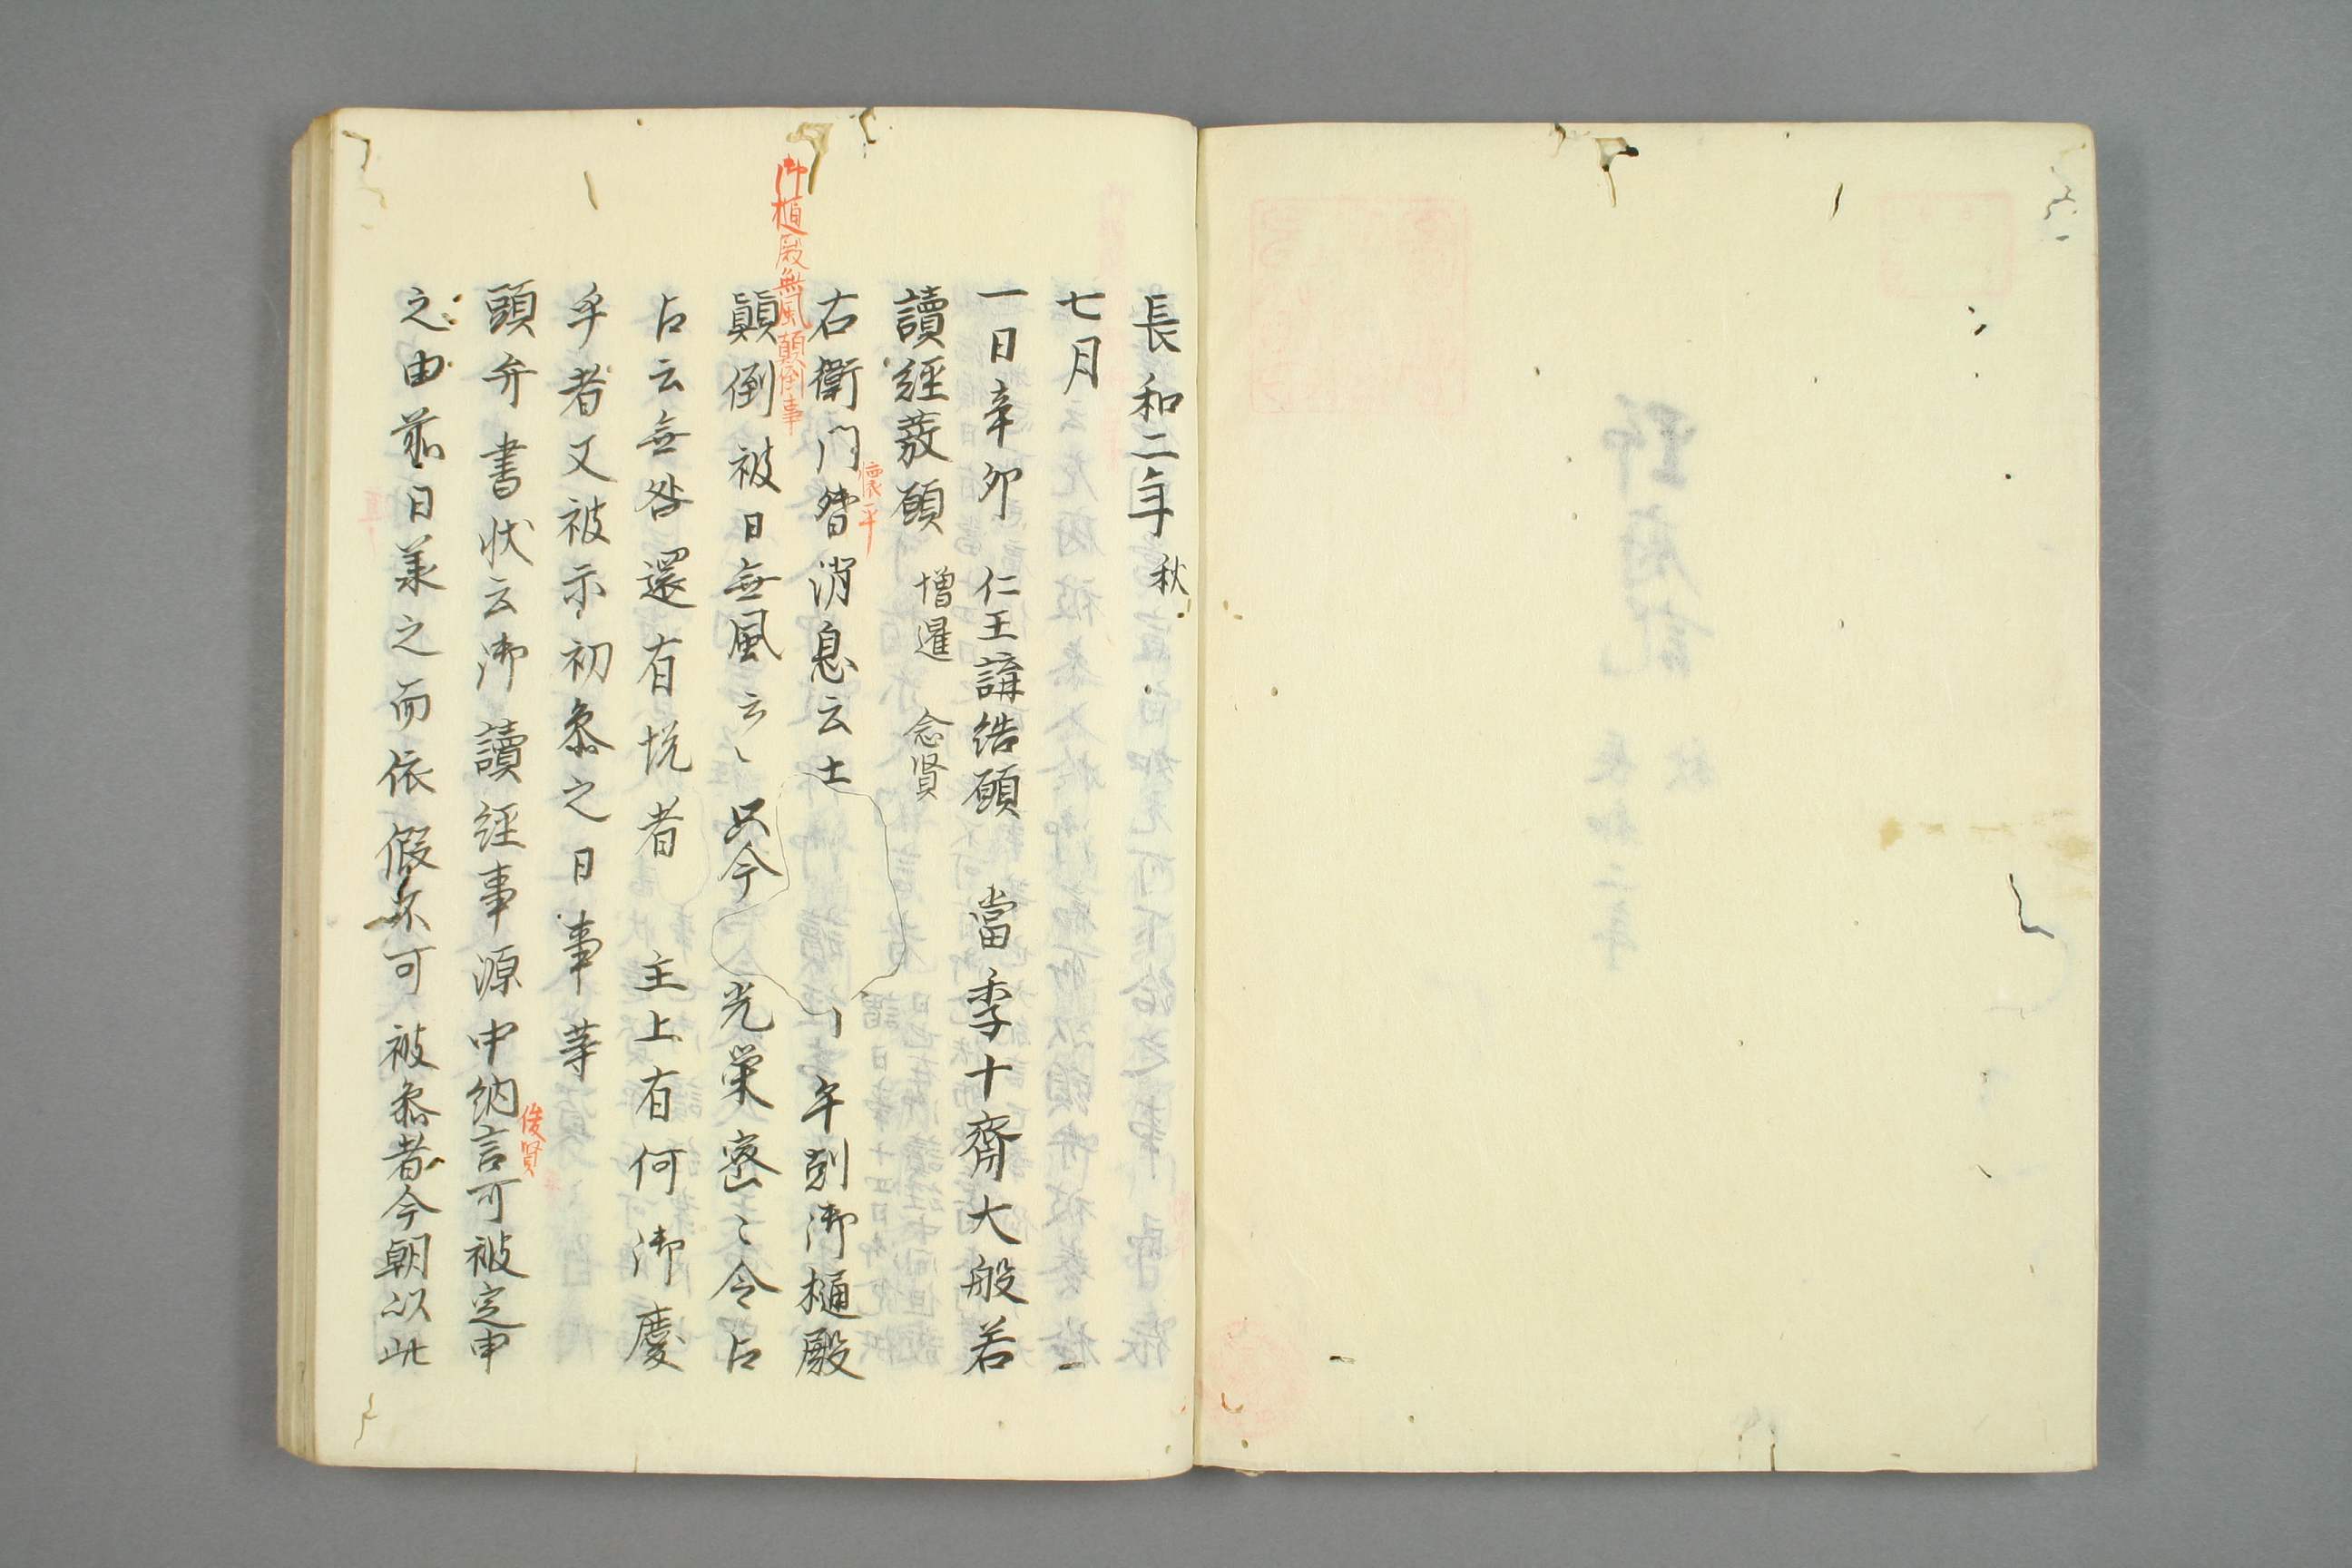 長和二年秋
七月
一日辛卯 仁王講結願 當季十齊大般若
讀經發願 増暹 念賢
懐平
右衛門督消息云士 午剋御樋殿
御樋殿無風顛倒事
顛倒被日無風云々 只今 光榮密々令占
占云無咎還有悦者 主上有何御慶
乎者又被示初參之日事等
俊賢
頭弁書状云御讀經事源中納言可被定申
之由前日羕之而依假不可被參者今朝以此